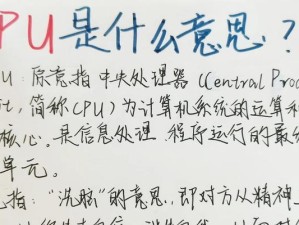 PU是什么意思?
U:原意指中央处理器(Central Proc
it,简称CPU)为计算机系统的运算和
核心。是信息处理、程序运行的最终
单元。
指:“洗脑”的意思,即对方从精神上